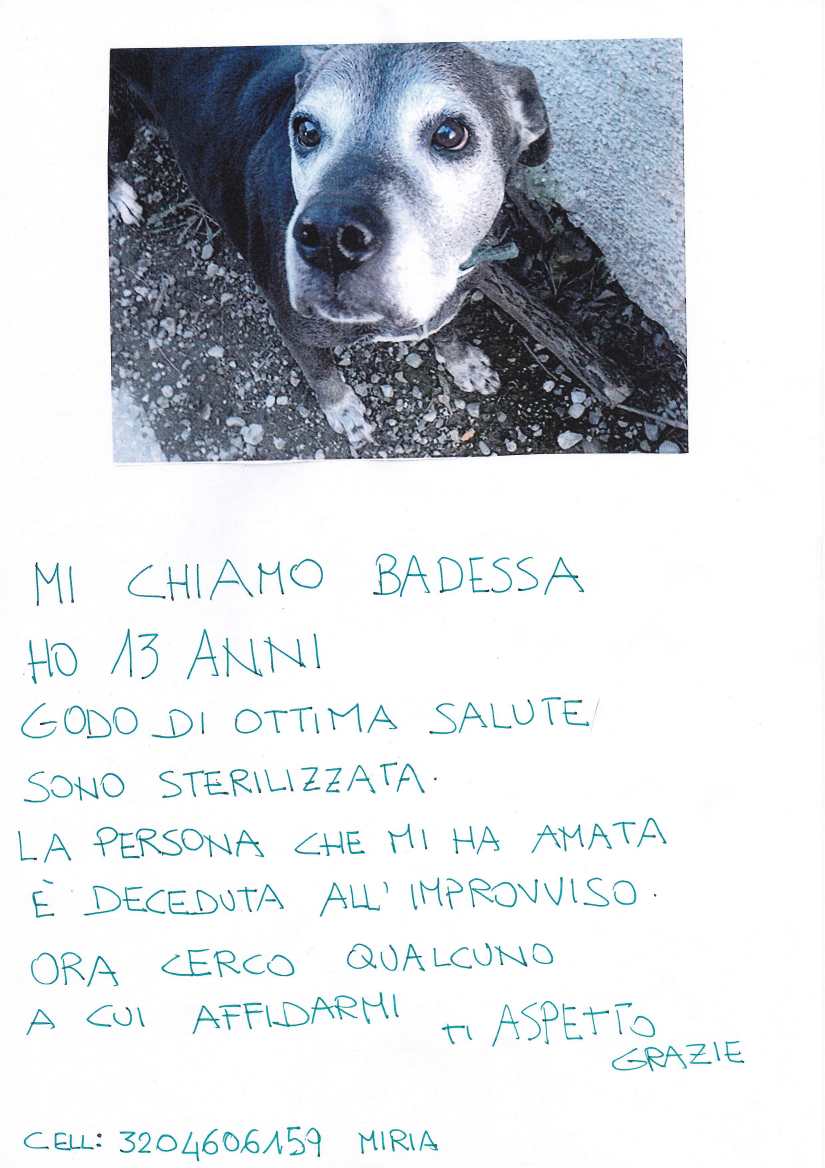 MI CHIAMO BADESSA
HO 13 ANNI
GODO DI OTTIMA SALUTE
SONO STERILIZZATA.
LA PERSONA CHE MI HA AMATA
È DECEDUTA ALL'IMPROVVISO.
ORA CERCO QUALCUNO
A CUI AFFIDARMI TI ASPETTO
GRAZIE
CELL: 3204606159 MIRIA